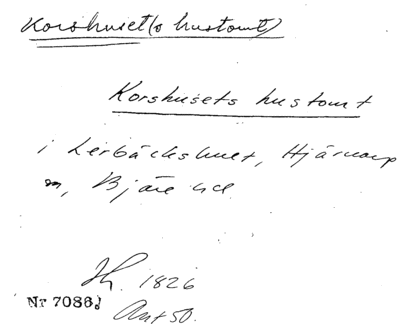 Korshuset(s hustomt)
Korshusets hustomt
i Lerbäckshult, Hjärnarp
sn, Bjäre hd.
Jh. 1826
Nr 7086.
Ant 50.